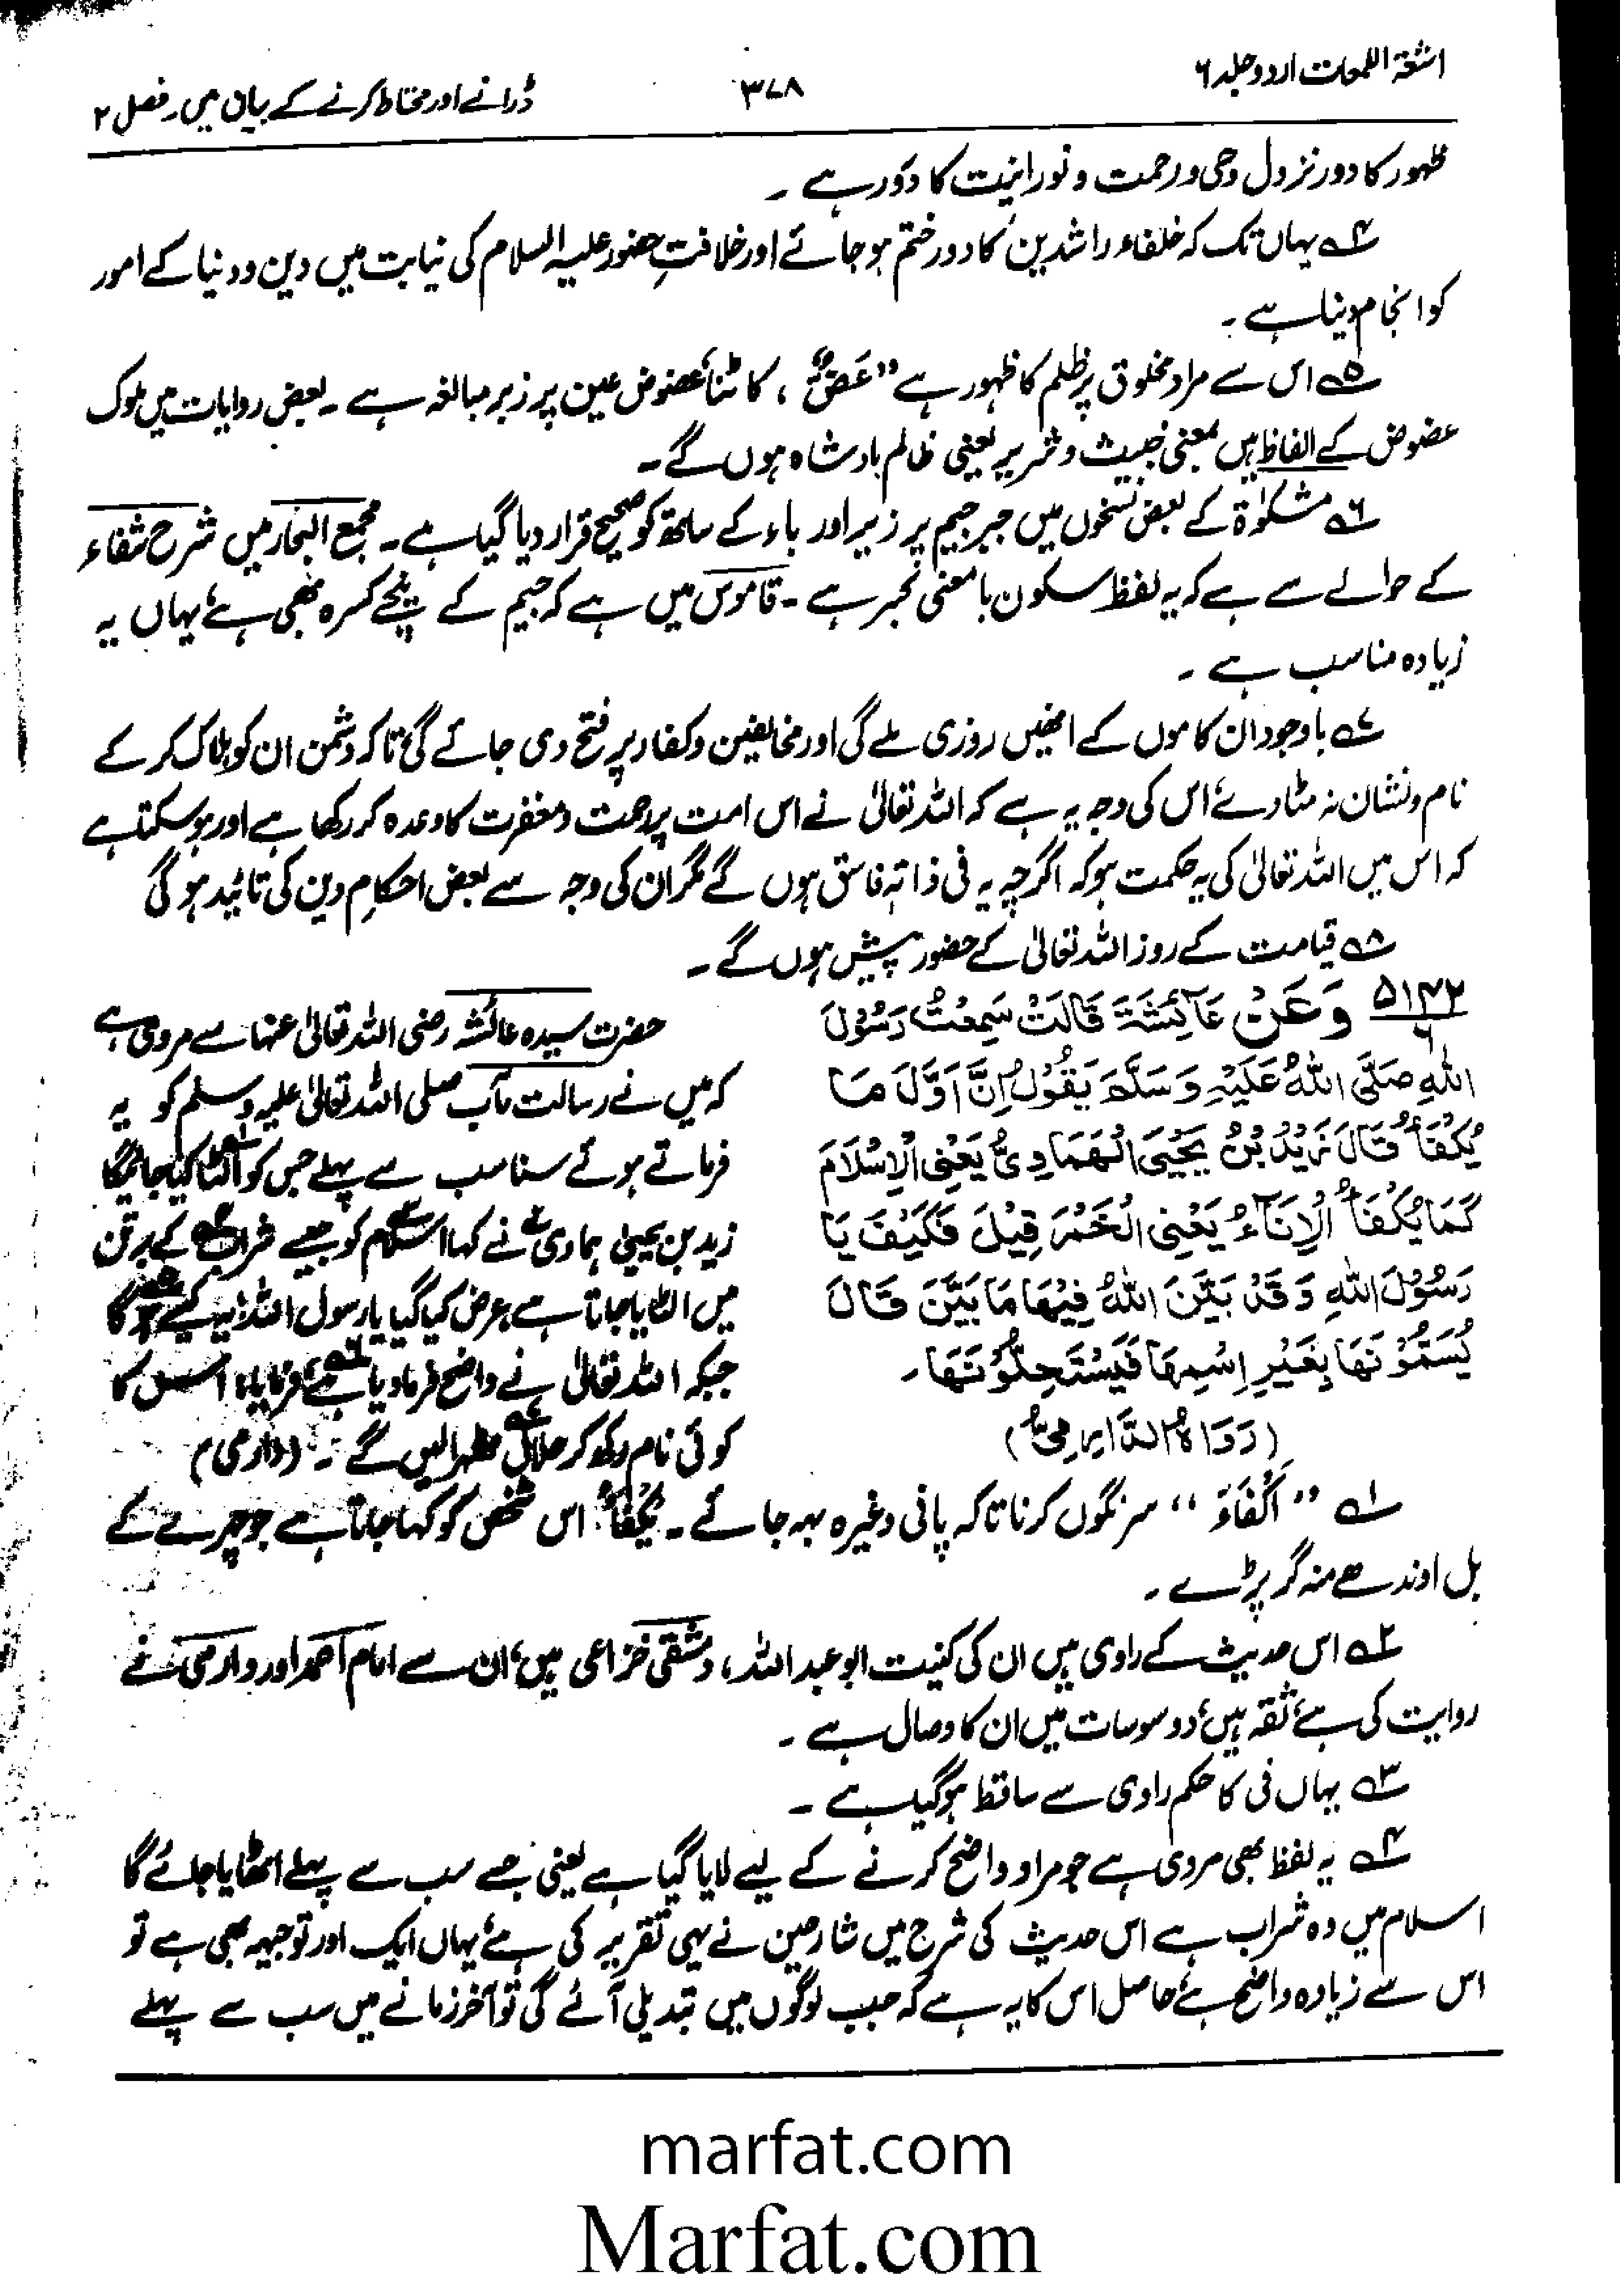 اشعۃ اللمعات اردو جلد ۶
۳۷۸
ڈرانے اور محتاط کرنے کے بیان میں۔ فصل ۲
ظہور کا دور نزول وحی و رحمت و نورانیت کا دور ہے۔
۴؎ یہاں تک کہ خلفاء راشدین کا دور ختم ہو جائے اور خلافتِ حضور علیہ السلام کی نیابت میں دین و دنیا کے امور
کو انجام دینا ہے۔
۵؎ اس سے مراد مخلوق پر ظلم کا ظہور ہے ”عَضٌّ“، کاٹنا، عضوض عین پر زبر مبالغہ ہے۔ بعض روایات میں ملوک
عضوض کے الفاظ ہیں بمعنی خبیث و شریر یعنی ظالم بادشاہ ہوں گے۔
۶؎ مشکوٰۃ کے بعض نسخوں میں جبر جیم پر زیر اور باء کے ساتھ کو صحیح قرار دیا گیا ہے۔ مجمع البحار میں شرح شفاء
کے حوالے سے ہے کہ یہ لفظ سکون با معنی تجبر ہے۔ قاموس میں ہے کہ جیم کے نیچے کسرہ بھی ہے، یہاں یہ
زیادہ مناسب ہے۔
۷؎ باوجود ان کاموں کے انھیں روزی ملے گی اور مخالفین و کفار پر فتح دی جائے گی، تاکہ دشمن ان کو ہلاک کر کے
نام و نشان نہ مٹا دے، اس کی وجہ یہ ہے کہ اللہ تعالیٰ نے اس امت پر رحمت و مغفرت کا وعدہ کر رکھا ہے اور ہو سکتا ہے
کہ اس میں اللہ تعالیٰ کی یہ حکمت ہو کہ اگرچہ یہ فی ذاتہ فاسق ہوں گے مگر ان کی وجہ سے بعض احکامِ دین کی تائید ہو گی
۸؎ قیامت کے روز اللہ تعالیٰ کے حضور پیش ہوں گے۔
۵۱۴۲/۶ وَعَنْ عَآئِشَةَ قَالَتْ سَمِعْتُ رَسُوْلَ
اللّٰهِ صَلَّى اللّٰهُ عَلَيْهِ وَسَلَّمَ يَقُوْلُ اِنَّ اَوَّلَ مَا
يُكْفَأُ قَالَ زَيْدُ بْنُ يَحْيَى الْهَمَادِيُّ يَعْنِى الْاِسْلَامَ
كَمَا يُكْفَأُ الْاِنَآءُ يَعْنِى الْخَمْرَ قِيْلَ فَكَيْفَ يَا
رَسُوْلَ اللّٰهِ وَقَدْ بَيَّنَ اللّٰهُ فِيْهَا مَا بَيَّنَ قَالَ
يُسَمُّوْنَهَا بِغَيْرِ اِسْمِهَا فَيَسْتَحِلُّوْنَهَا۔
(رَوَاهُ الدَّارِمِيُّ)
حضرت سیدہ عائشہ رضی اللہ تعالیٰ عنہا سے مروی ہے
کہ میں نے رسالت مآب صلی اللہ تعالیٰ علیہ وسلم کو یہ
فرماتے ہوئے سنا سب سے پہلے جس کو الٹا کیا جائیگا
زید بن یحییٰ ہمادی نے کہا اسلام کو جیسے شراب کے برتن
میں الٹایا جاتا ہے، عرض کیا گیا یا رسول اللہ! یہ کیسے ہوگا
جبکہ اللہ تعالیٰ نے واضح فرما دیا ہے، فرمایا، اس کا
کوئی نام رکھ کر حلال ٹھہرالیں گے۔ (دارمی)
۱؎ ”اَکْفَاءَ“ سرنگوں کرنا تاکہ پانی وغیرہ بہہ جائے۔ یُکْفَأُ، اس شخص کو کہا جاتا ہے جو چہرے کے
بل اوندھے منہ گر پڑے۔
۲؎ اس حدیث کے راوی ہیں ان کی کنیت ابو عبداللہ، دمشقی خزاعی ہیں، ان سے امام احمد اور دارمی نے
روایت کی ہے، ثقہ ہیں، دو سو سات میں ان کا وصال ہے۔
۳؎ یہاں فی کا حکم راوی سے ساقط ہو گیا ہے۔
۴؎ یہ لفظ بھی مروی ہے جو مراد واضح کرنے کے لیے لایا گیا ہے یعنی جسے سب سے پہلے اٹھایا جائے گا
اسلام میں وہ شراب ہے اس حدیث کی شرح میں شارحین نے یہی تقریر کی ہے، یہاں ایک اور توجیہہ بھی ہے تو
اس سے زیادہ واضح ہے، حاصل اس کا یہ ہے کہ جب لوگوں میں تبدیلی آئے گی تو آخر زمانے میں سب سے پہلے
marfat.com
Marfat.com